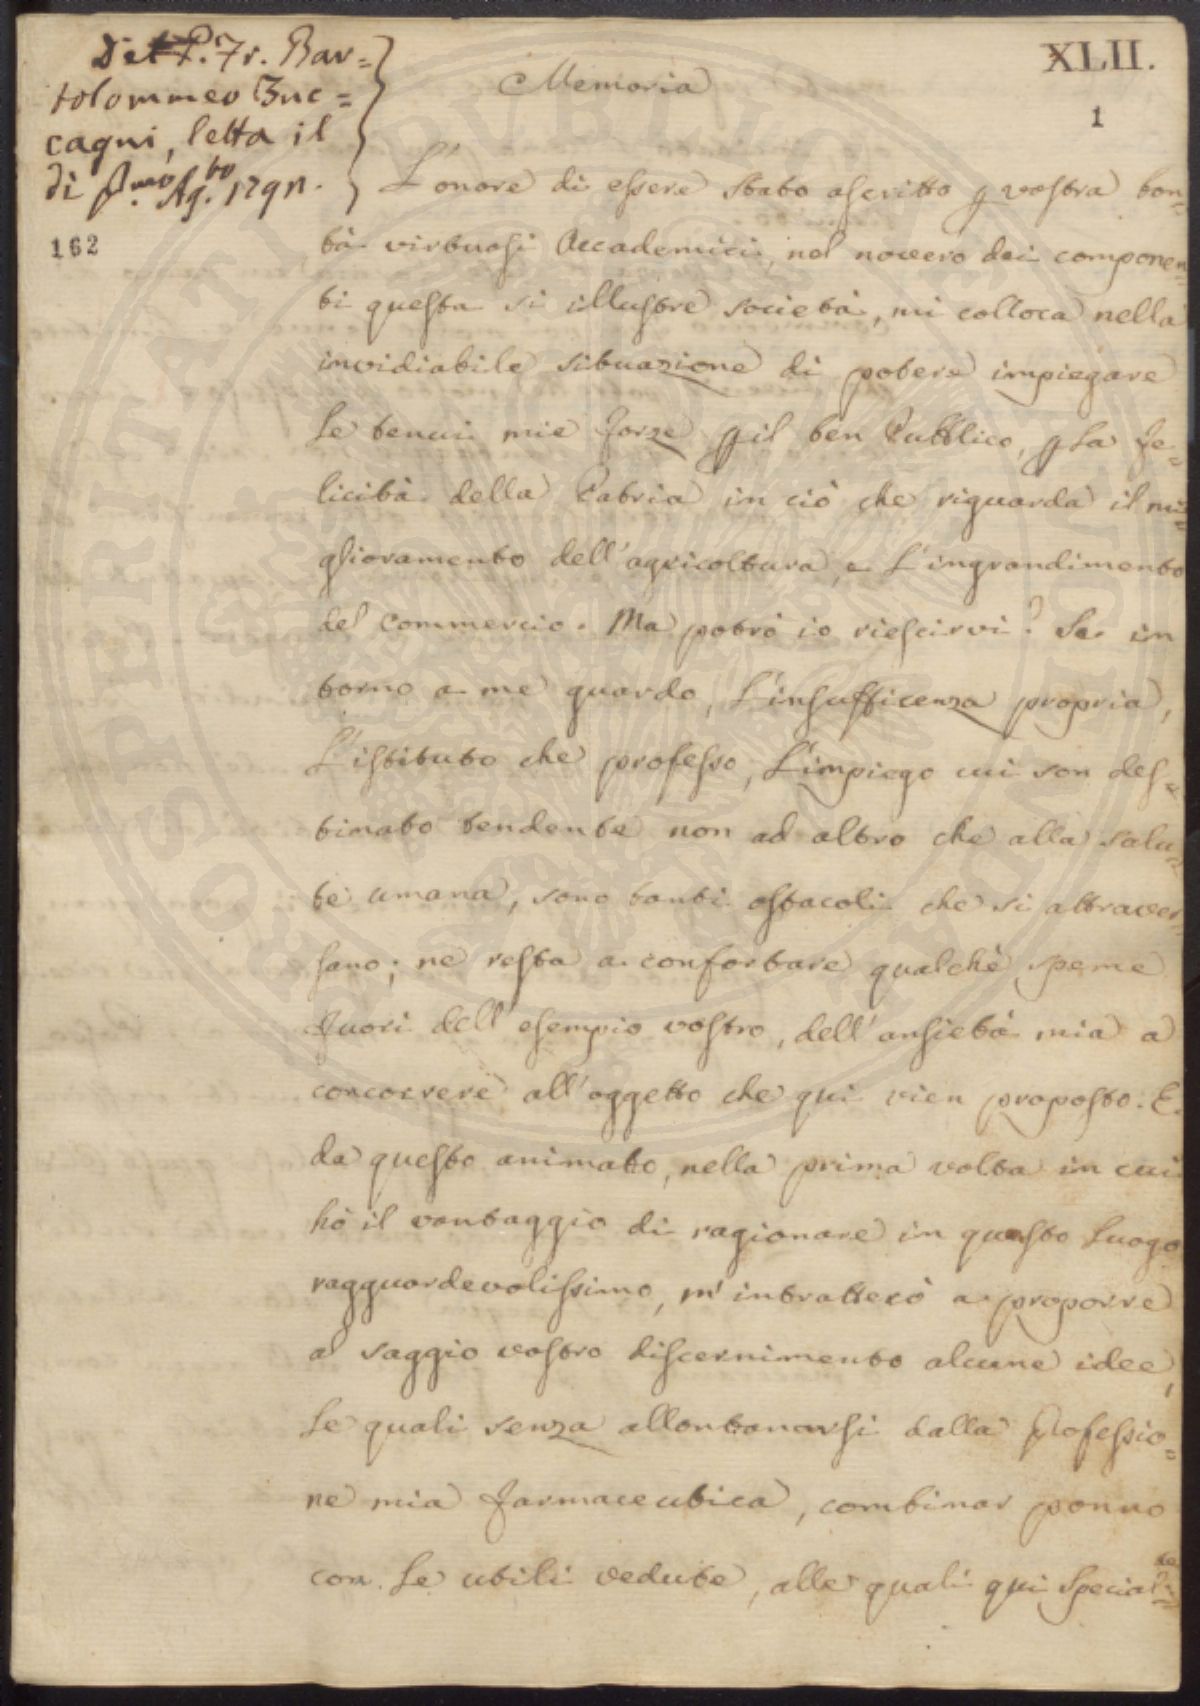 Del P. Fr. Bar=
tolommeo Zuc=
cagni, letta il
di p.mo Ag.to 1791.
XLII.
1
162
Memoria
L'onore di essere stato ascritto p vostra bon=
tà virtuosi Accademici, nel novero dei componen=
ti questa si illustre società, mi colloca nella
invidiabile situazione di potere impiegare
le tenui mie forze p il ben Pubblico, p la fe=
licità della Patria in ciò che riguarda il mi=
glioramento dell'agricoltura, e l'ingrandimento
del commercio. Ma potrò io riescirvi? Se in
torno a me guardo, l'insufficenza propria,
L'istituto che professo, l'impiego cui son des=
tinato tendente non ad altro che alla salu=
te umana, sono tanti ostacoli che si attraver=
sano; ne resta a confortare qualchè speme
fuori dell'esempio vostro, dell'ansietà mia a
concorrere all'oggetto che qui vien proposto. E
da questo animato, nella prima volta in cui
hò il vantaggio di ragionare in questo luogo
ragguardevolissimo, m'intratterò a proporre
al saggio vostro discernimento alcune idee,
le quali senza allontanarsi dalla Professio=
ne mia farmaceutica, combinar ponno
con le utili vedute, alle quali qui special=
PROSPERITATI PUBLICAE